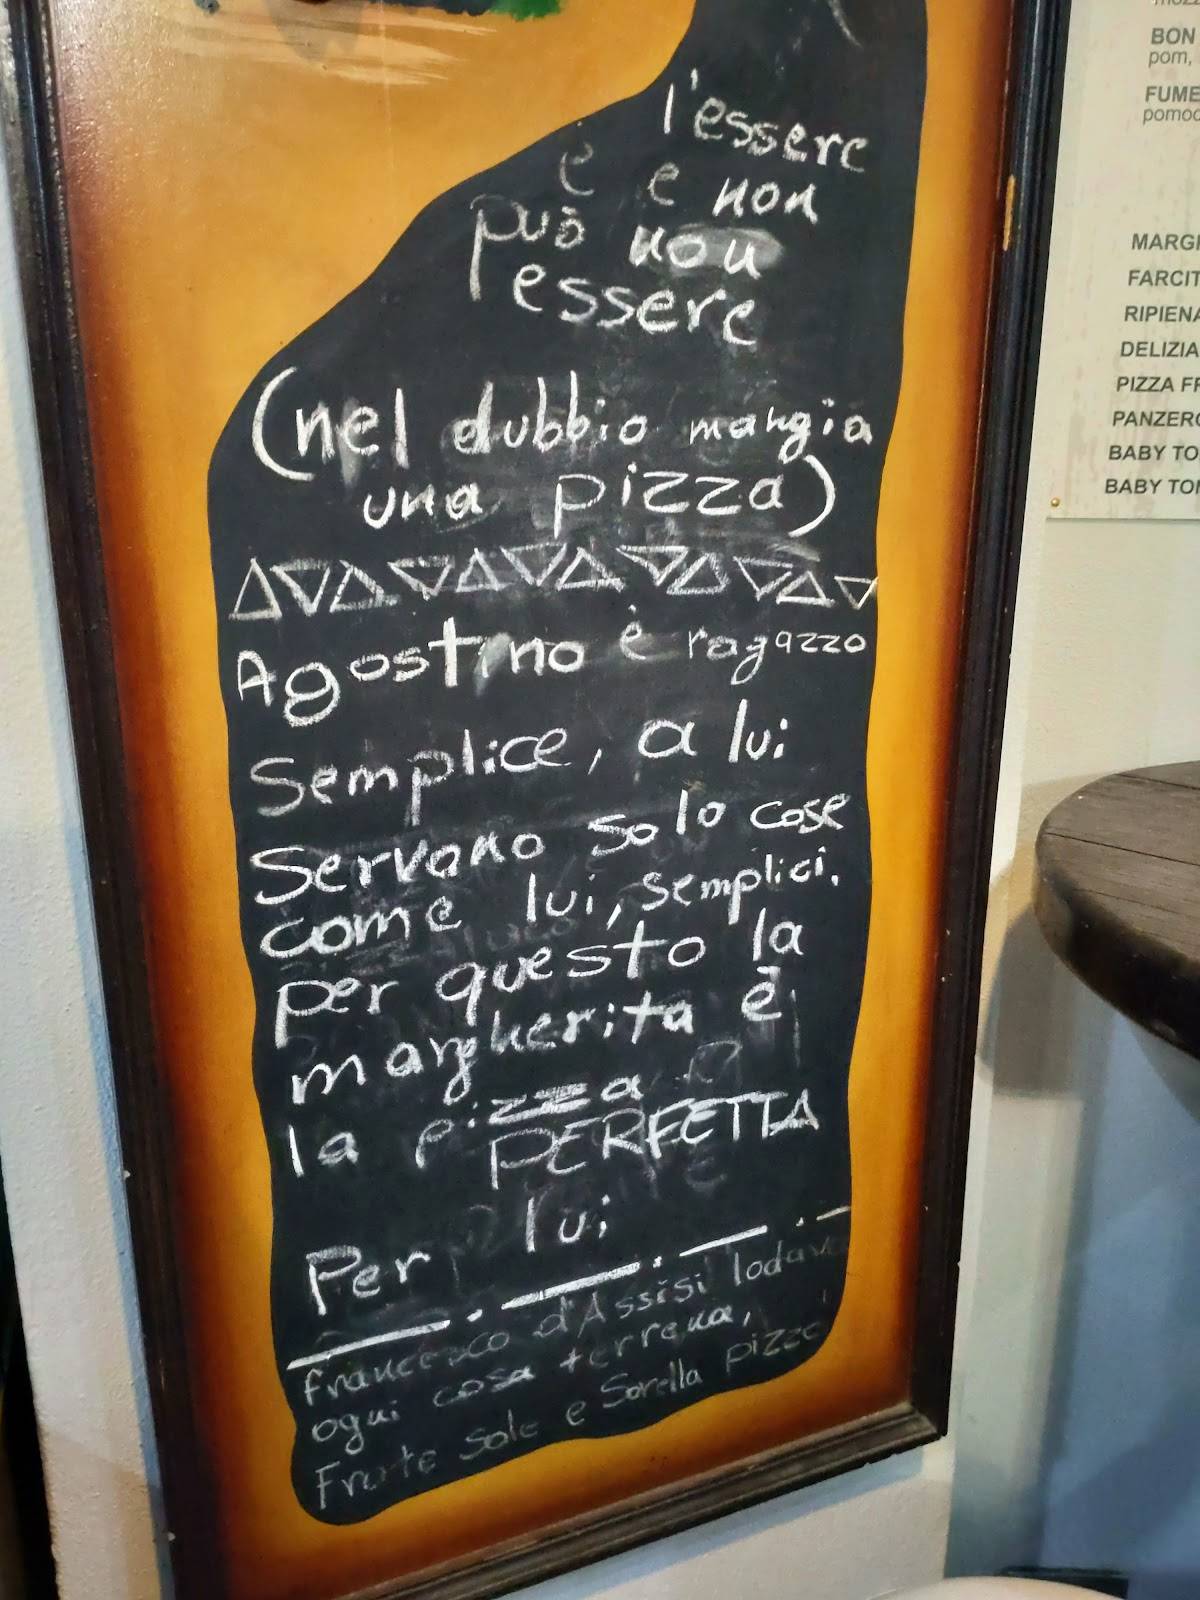 l'essere
è e non
può non
essere
(nel dubbio mangia
una pizza)
Agostino è ragazzo
semplice, a lui
servono solo cose
come lui, semplici.
per questo la
margherita è
la pizza
PERFETTA
Per lui
Francesco d'Assisi lodava
ogni cosa terrena,
Frate Sole e Sorella pizza
BON
pom,
FUME
pomod
MARGH
FARCIT
RIPIENA
DELIZIA
PIZZA FR
PANZERO
BABY TO
BABY TON